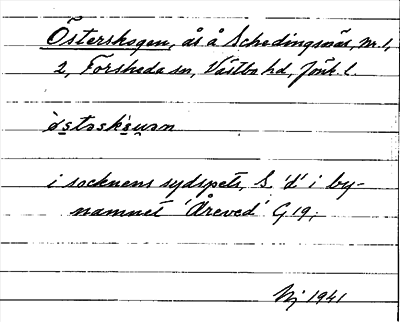 Österskogen, ås å Schedingsnäs, Nr. 1,
2, Forsheda sn, Västbo hd, Jönk. l.
i socknens sydspets, S 'd' i by-
namnet 'Åreved' G 19;
Nj 1941